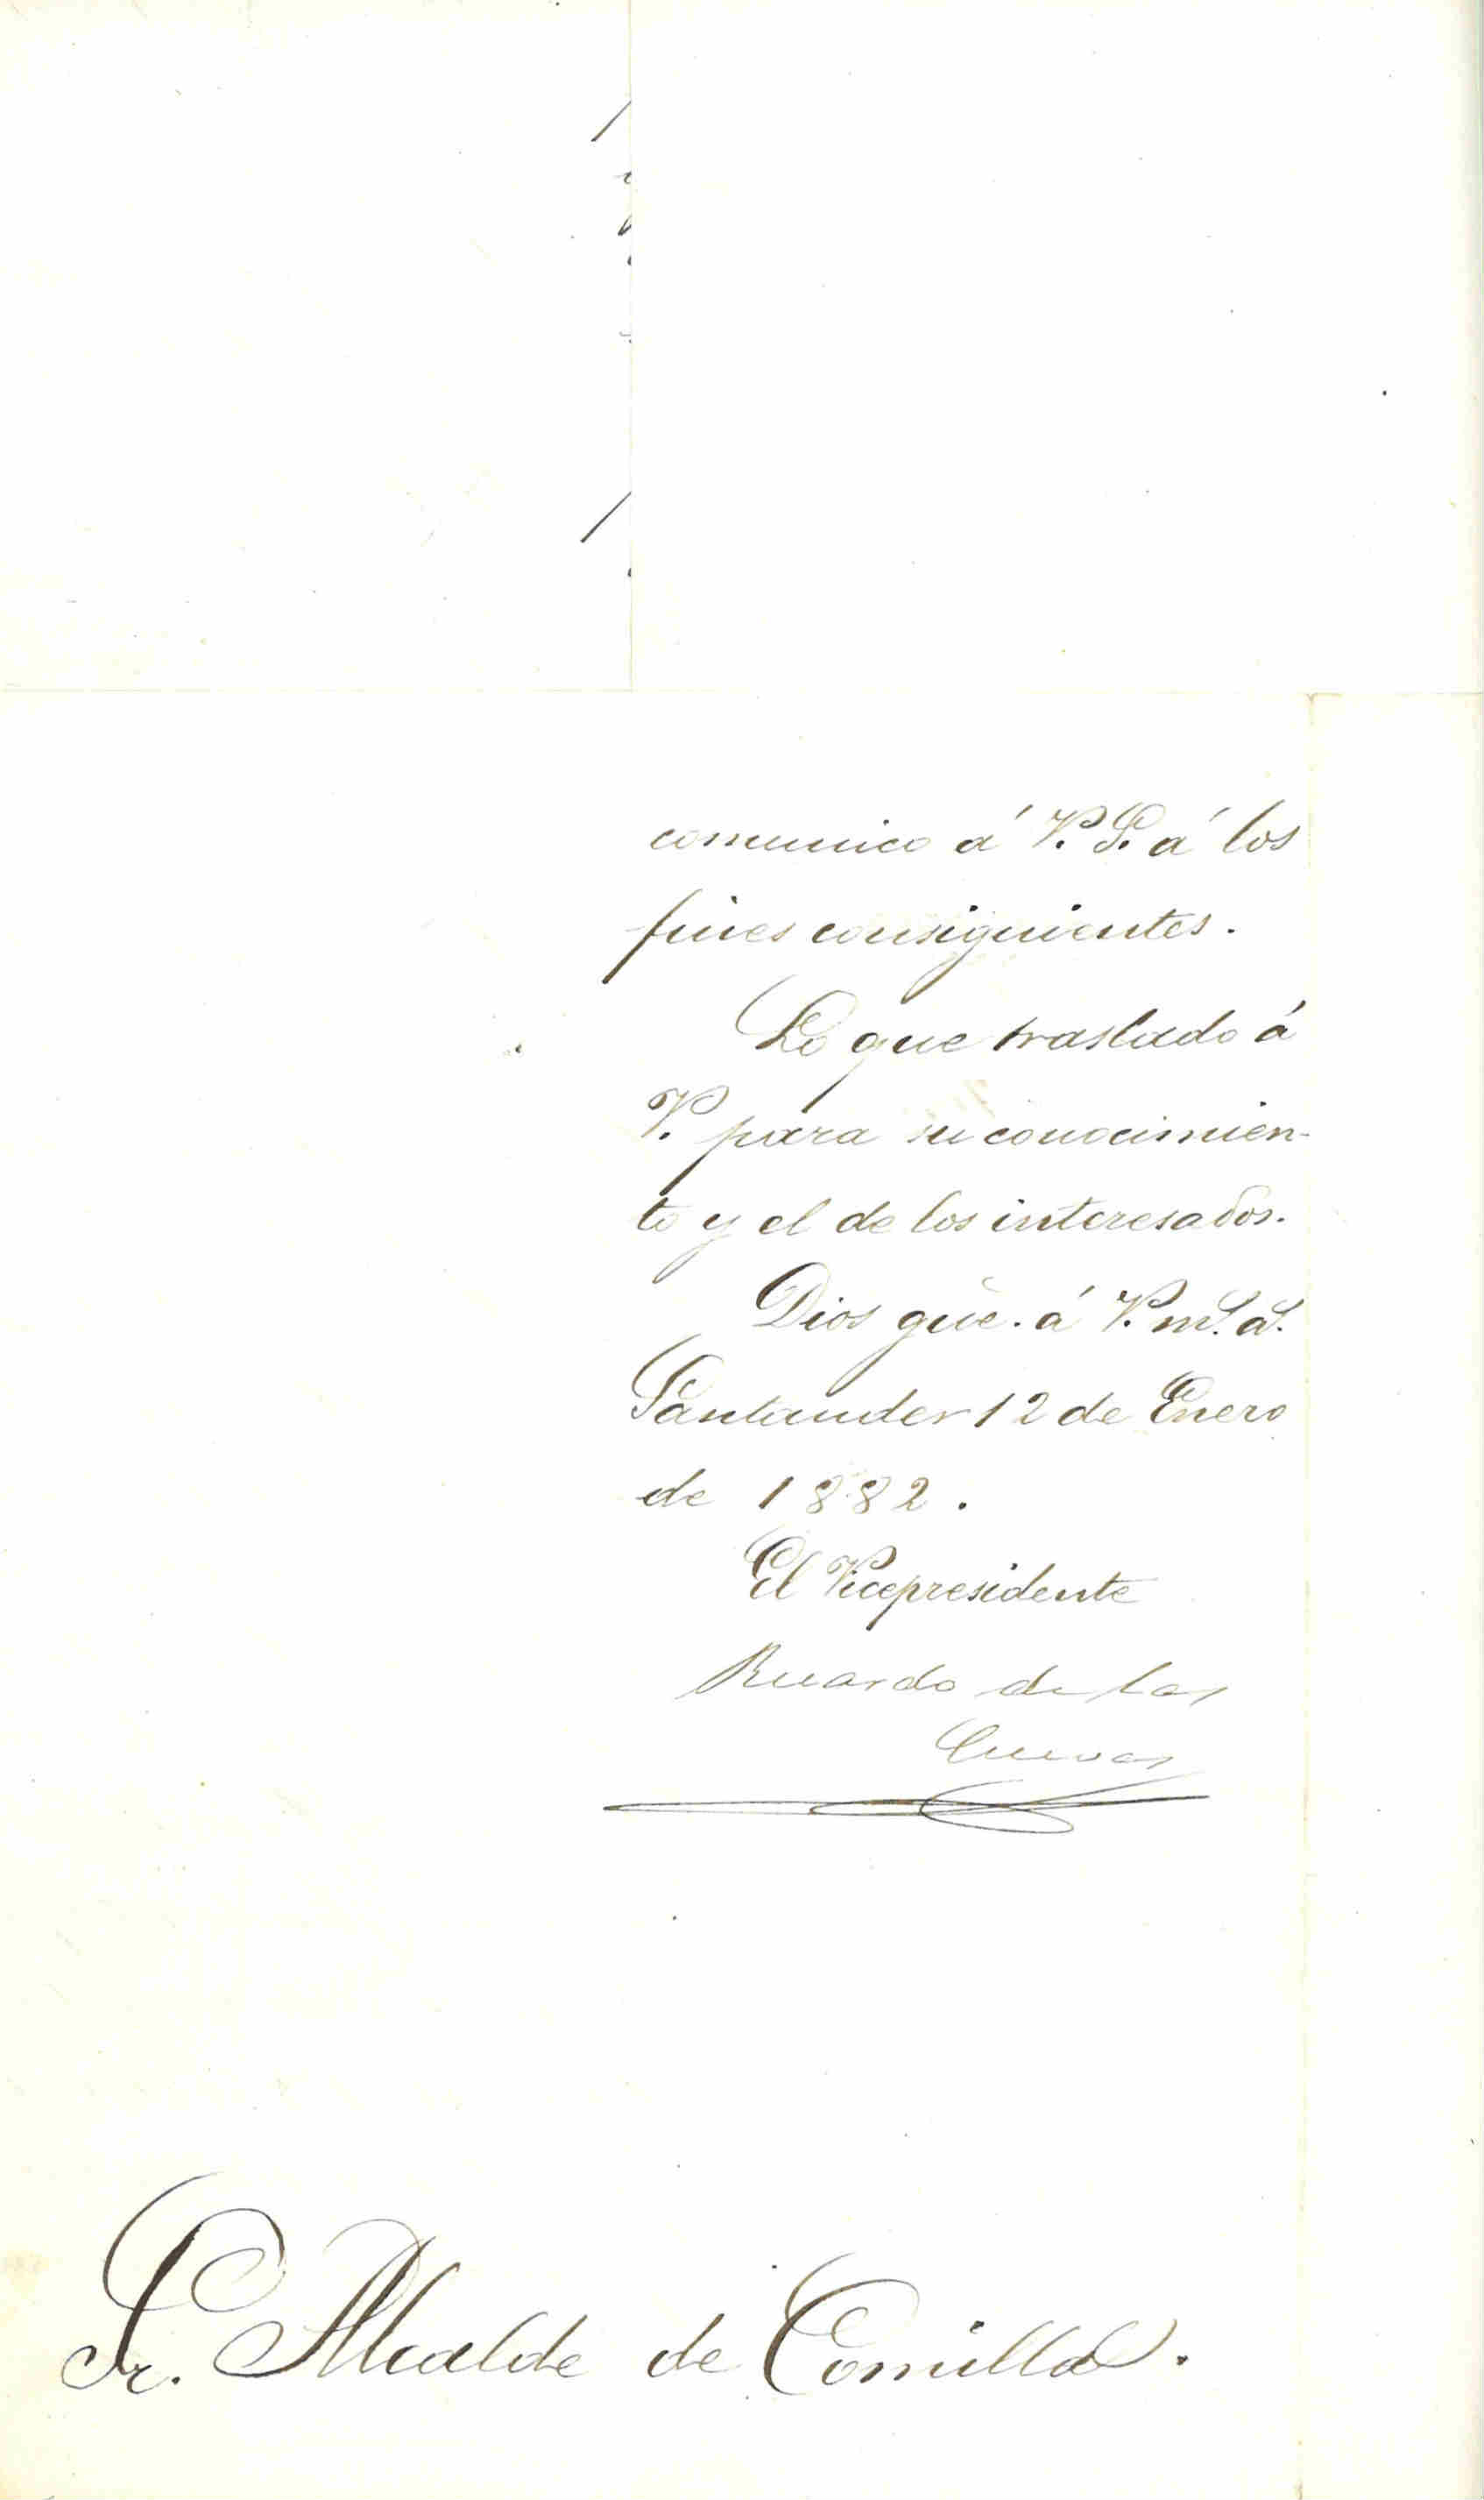 comunico á V. S. á los
fines consiguientes.
Lo que traslado á
V. para su conocimien-
to y el de los interesados.
Dios güe. á V. m.s a.s
Santander 12 de Enero
de 1882.
El Vicepresidente
Ricardo de las
Cuevas
Sr. Alcalde de Comillas.